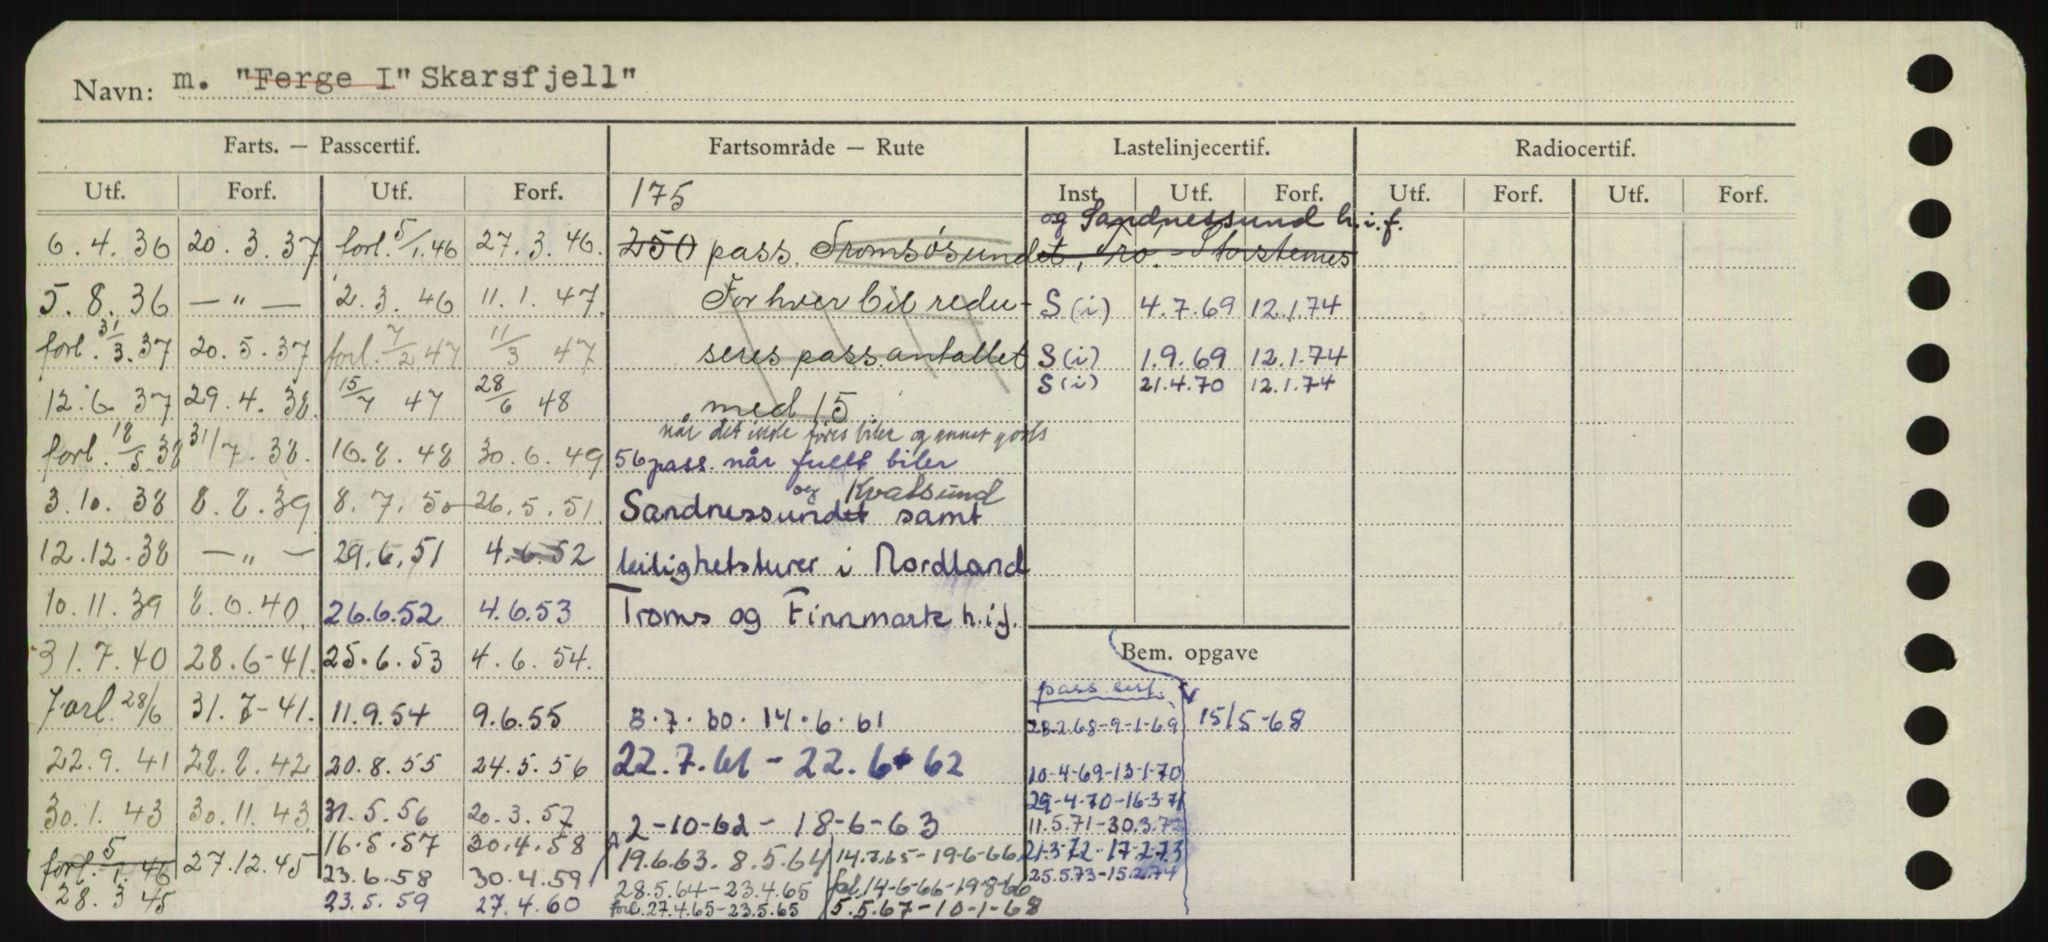 Navn: m. "Ferge I" Skarsfjell"
Farts. — Passcertif. Fartsområde — Rute Lastelinjecertif. Radiocertif.
Utf. Forf. Utf. Forf. 175 Inst. Utf. Forf. Utf. Forf. Utf. Forf.
og Sandnessund h.i.f.
6.4.36 20.3.37 forl. 5/1.46 27.3.46. 250 pass. Tromsøsundet, Tro. - Storstennes
5.8.36 — " — 2.3.46 11.1.47. For hver bil redu- S(i) 4.7.69 12.1.74
forl. 31/3.37 20.5.37 forl. 7/2 47 11/3 47 seres pass.antallet S(i) 1.9.69 12.1.74
S(i) 21.4.70 12.1.74
12.6.37 29.4.38. 15/7 47 28/6 48 med 15.
når det ikke føres biler og annet gods
forl. 18/5.38 31/7.38. 16.8.48 30.6.49 56 pass. når fullt biler
og Kvalsund
3.10.38 8.8.39 8.7.50 26.5.51. Sandnessundet samt
12.12.38 — " — 29.6.51 4.6.52 leilighetsturer i Nordland
10.11.39 8.6.40. 26.6.52 4.6.53 Troms og Finnmark h.i.f.
31.7.40 28.6-41. 25.6.53 4.6.54. Bem. opgave
pass sert.
Forl. 28/6 31.7-41. 11.9.54 9.6.55 8.7.60. 14.6.61 28.2.68-9-1-69 15/5-68
22.9.41 28.8.42 20.8.55 24.5.56 22.7.61 - 22.6-62 10-4-69-13-1-70
29-4-70-16-3-71
30.1.43 30.11.43 31.5.56 20.3.57 2-10-62 - 18-6-63 11.5.71-30.3.72
16.5.57 20.4.58
forl. 5/1.46 27.12.45 19.6.63. 8.5.64 14.7.65-19-6-66 21.3.72-17.2.73
23.6.58 30.4.59 28.5.64-23.4.65 fol 14-6-66-19-8-66 25.5.73-15.2.74
28.3 45 23.5.59 27.4.60 forl. 27.4.65-23.5.65 5.5.67-10-1-68